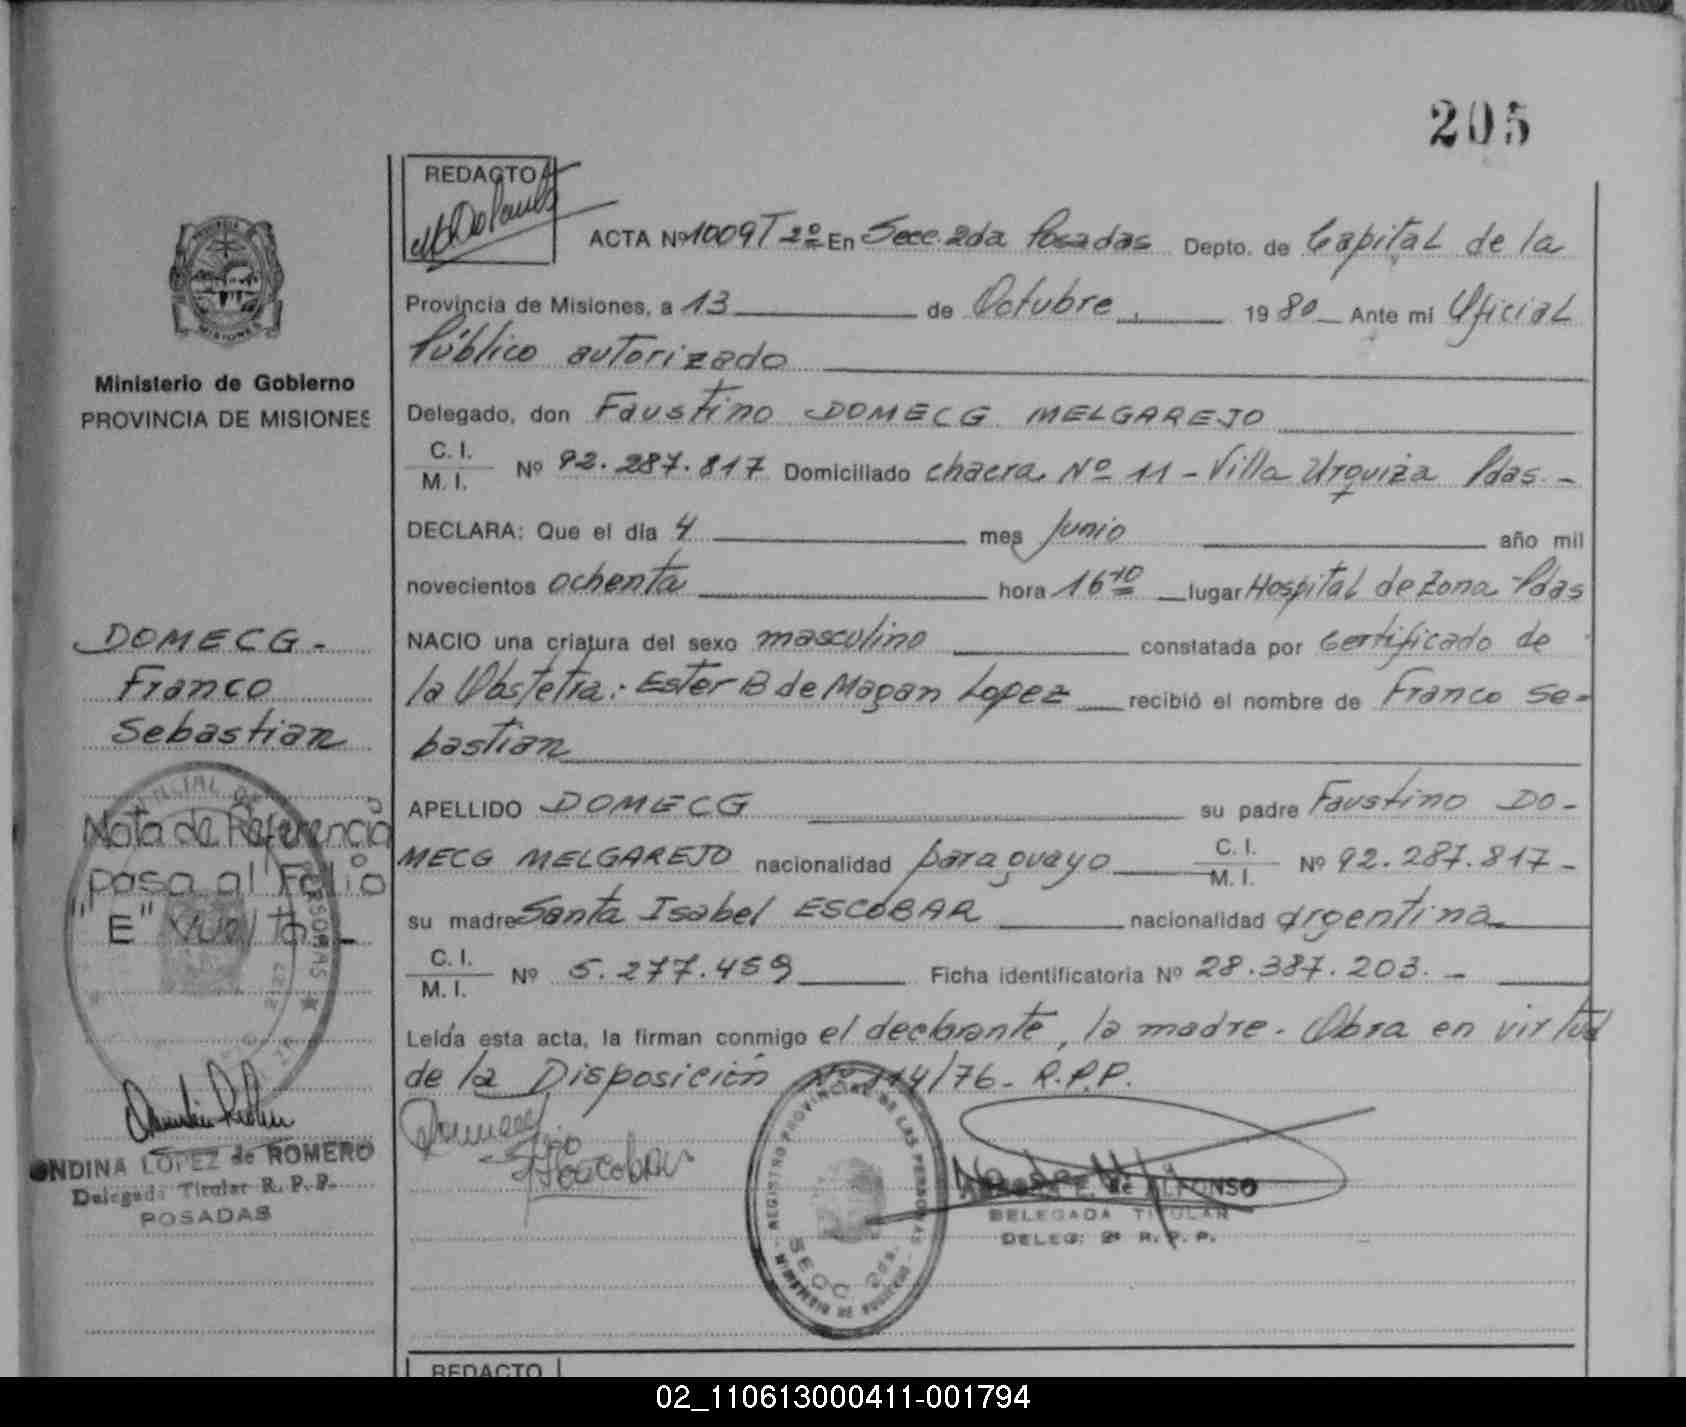 205
REDACTO
ACTA Nº 1009 Tº 2º En Secc. 2da Posadas Depto. de Capital de la
Provincia de Misiones, a 13 de Octubre, 1980 Ante mi Oficial
Público autorizado
Delegado, don Faustino DOMECG MELGAREJO
C. I.
M. I. Nº 92.287.817 Domiciliado chacra Nº 11 - Villa Urquiza Pdas. -
DECLARA: Que el día 4 mes Junio año mil
novecientos ochenta hora 16 10 lugar Hospital de Zona - Pdas
NACIO una criatura del sexo masculino constatada por Certificado de
la Obstetra: Ester B de Magan Lopez recibió el nombre de Franco Se-
bastian
APELLIDO DOMECG su padre Faustino DO-
MECG MELGAREJO nacionalidad paraguayo C. I. M. I. Nº 92.287.817 -
su madre Santa Isabel ESCOBAR nacionalidad argentina
C. I.
M. I. Nº 5.277.459 Ficha identificatoria Nº 28.387.203. -
Leída esta acta, la firman conmigo el declarante, la madre. Obra en virtud
de la Disposición Nº 114/76 - R.P.P.
Ministerio de Gobierno
PROVINCIA DE MISIONES
DOMECG -
Franco
Sebastian
Nota de Referencia
pasa al Folio
"E" vuelta
ONDINA LOPEZ de ROMERO
Delegada Titular R. P. P.
POSADAS
REGISTRO PROVINCIAL DE LAS PERSONAS
SECC. 2da.
MINISTERIO DE GOBIERNO
E. de ALFONSO
DELEGADA TITULAR
DELEG: 2ª R. P. P.
REDACTO
02_110613000411-001794